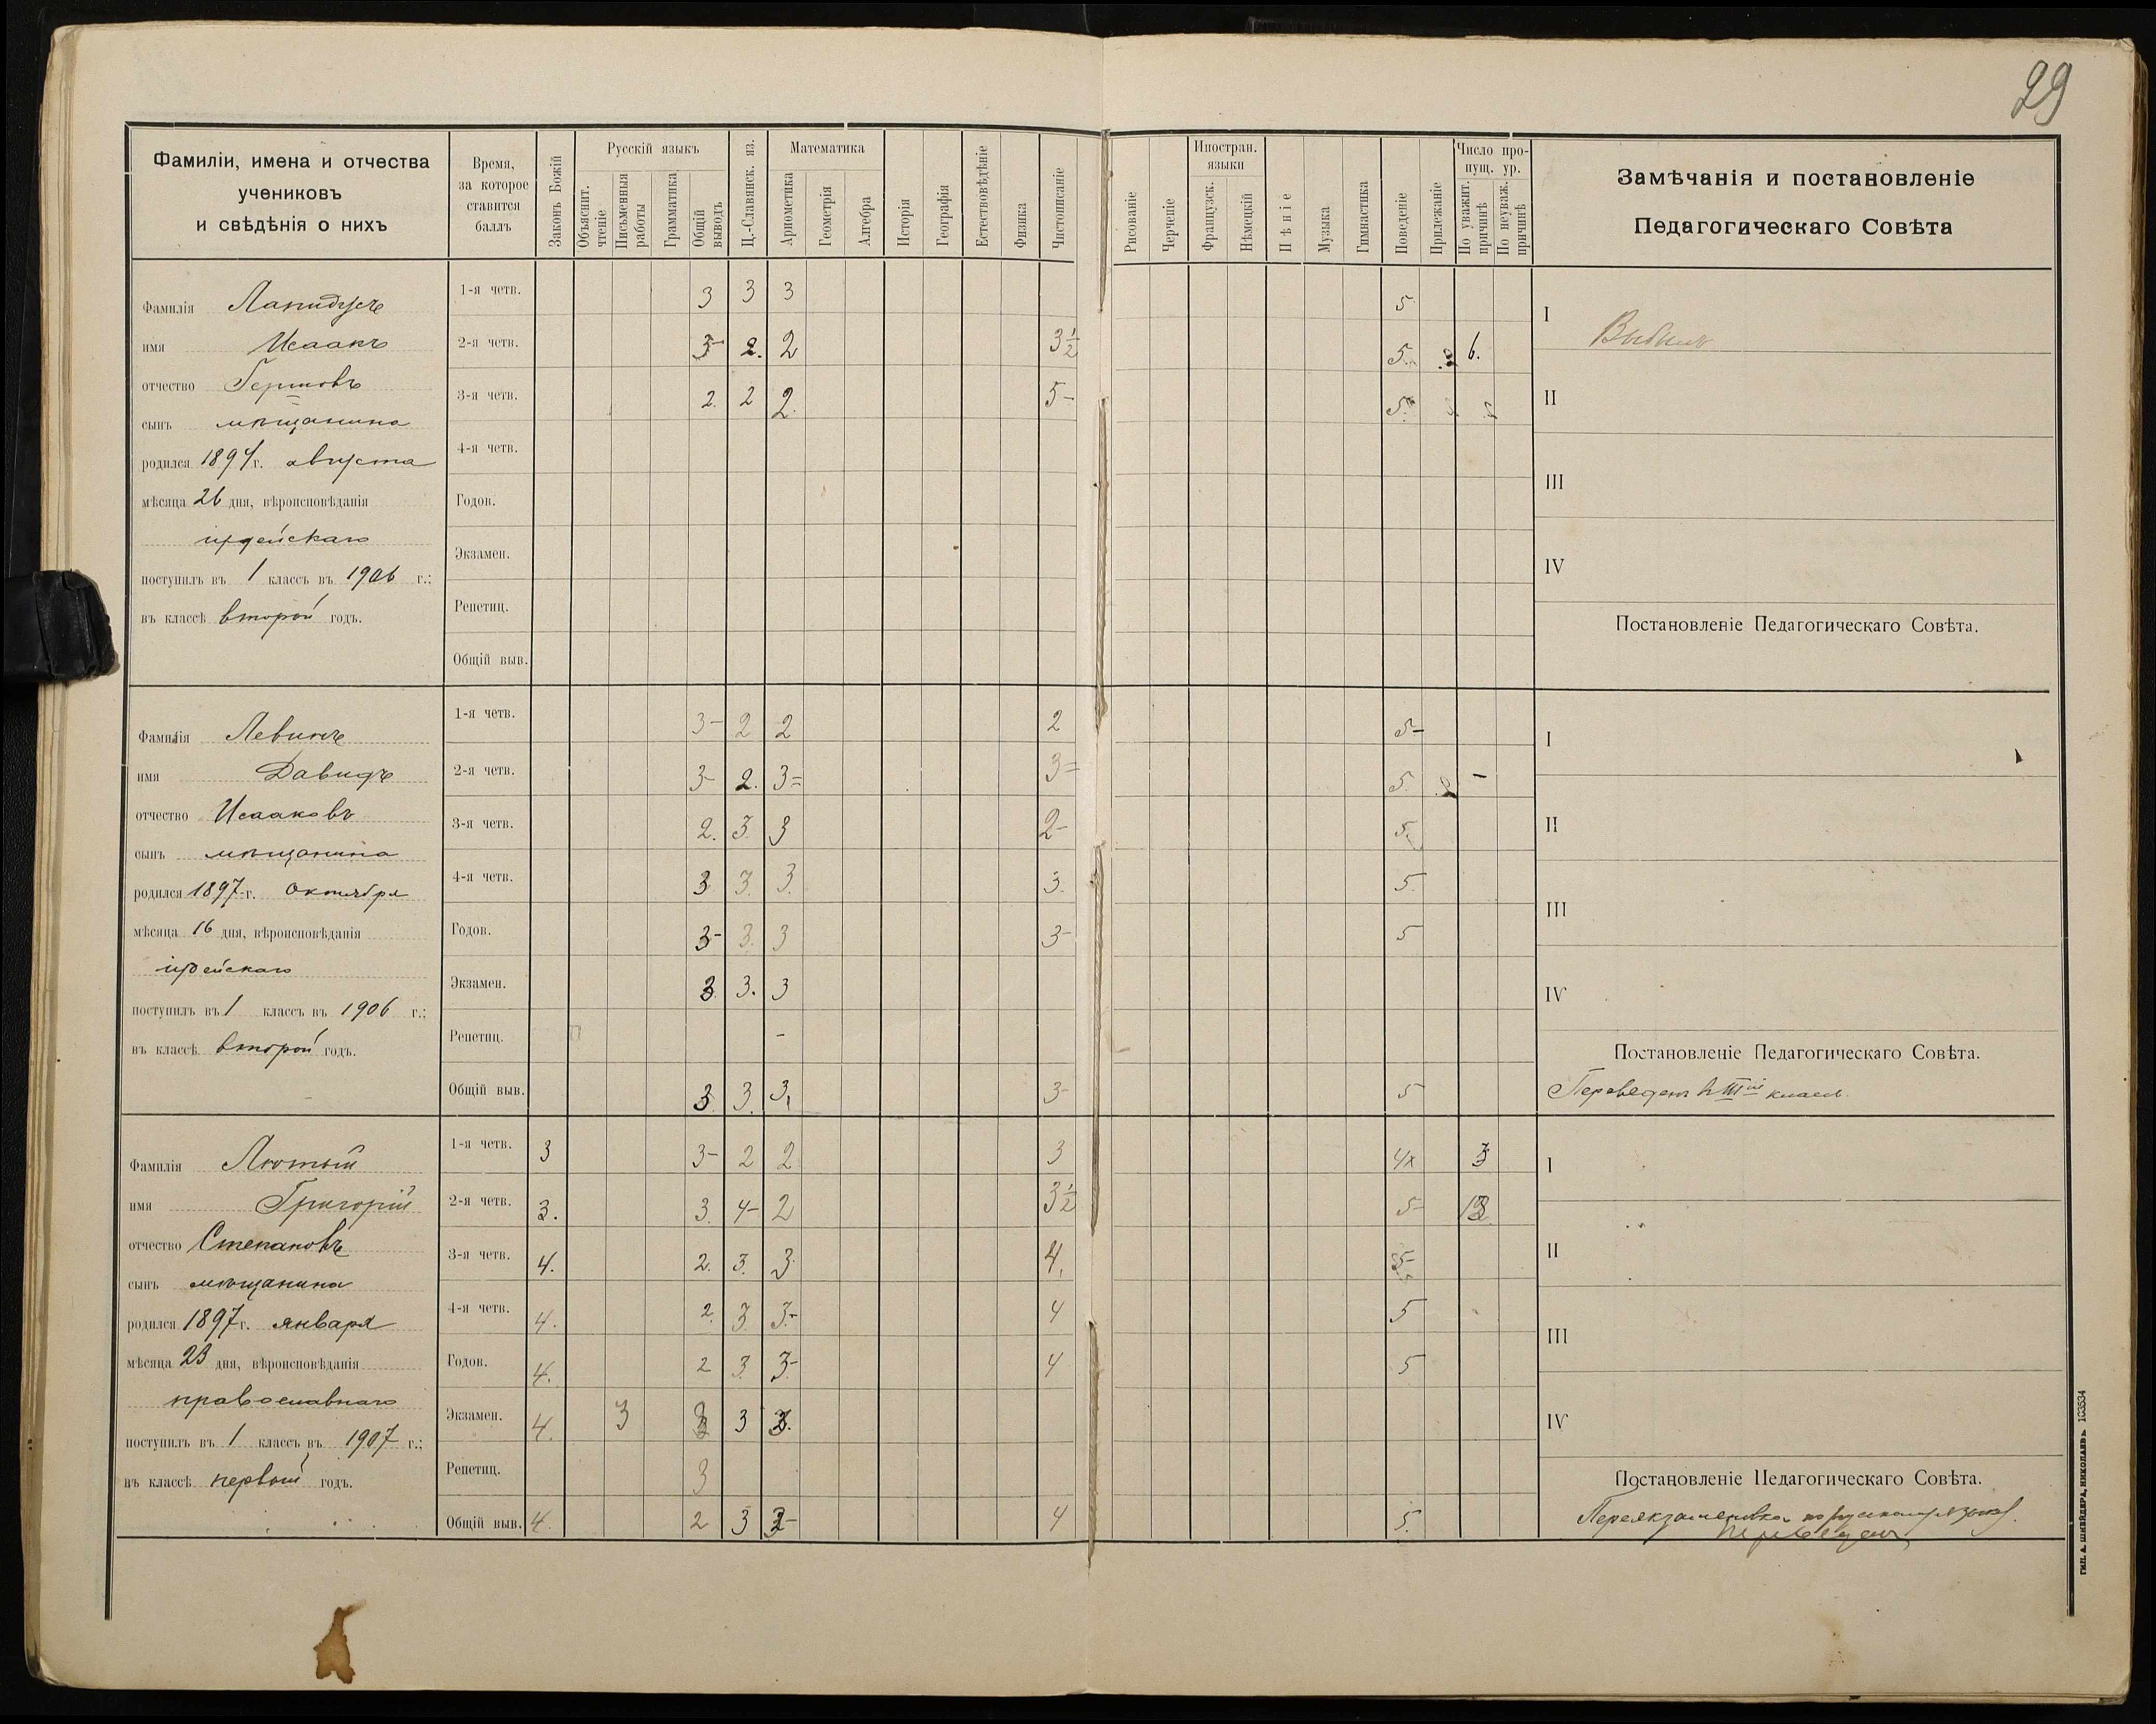 29
Фамиліи, имена и отчества
учениковъ
и свѣдѣнія о нихъ
Время,
за которое
ставится
баллъ
Законъ Божій
Русскій языкъ
Объяснит. чтеніе
Письменныя работы
Грамматика
Общій выводъ
Ц.-Славянск. яз.
Математика
Ариѳметика
Геометрія
Алгебра
Исторія
Географія
Естествовѣдѣніе
Физика
Чистописаніе
Рисованіе
Черченіе
Иностран. языки
Французск.
Нѣмецкій
Пѣніе
Музыка
Гимнастика
Поведеніе
Прилежаніе
Число про-
пущ. ур.
По уважит. причинѣ
По неуваж. причинѣ
Замѣчанія и постановленіе
Педагогическаго Совѣта
Фамилія Лапидусъ
имя Исаакъ
отчество Гершовъ
сынъ мѣщанина
родился 1894 г. августа
мѣсяца 26 дня, вѣроисповѣданія
іудейскаго
поступилъ въ 1 классъ въ 1906 г.;
въ классѣ второй годъ.
1-я четв. 3 3 3 5
2-я четв. 3- 2. 2 3½ 5. 6.
3-я четв. 2. 2 2. 5- 5.
4-я четв.
Годов.
Экзамен.
Репетиц.
Общій выв.
I Выбылъ
II
III
IV
Постановленіе Педагогическаго Совѣта.
Фамилія Левинъ
имя Давидъ
отчество Исааковъ
сынъ мѣщанина
родился 1897 г. октября
мѣсяца 16 дня, вѣроисповѣданія
іудейскаго
поступилъ въ 1 классъ въ 1906 г.;
въ классѣ второй годъ.
1-я четв. 3- 2 2 2 5-
2-я четв. 3- 2. 3= 3= 5. -
3-я четв. 2. 3. 3 2- 5.
4-я четв. 3 3. 3. 3. 5.
Годов. 3- 3. 3 3- 5
Экзамен. 3. 3. 3
Репетиц. -
Общій выв. 3 3. 3. 3- 5
I
II
III
IV
Постановленіе Педагогическаго Совѣта.
Переведенъ в III й классъ.
Фамилія Лютый
имя Григорій
отчество Степановъ
сынъ мѣщанина
родился 1897 г. января
мѣсяца 23 дня, вѣроисповѣданія
православнаго
поступилъ въ 1 классъ въ 1907 г.;
въ классѣ первый годъ.
1-я четв. 3 3- 2 2 3 4x 3
2-я четв. 3. 3. 4- 2 3½ 5-
3-я четв. 4. 2. 3. 3. 4. 5-
4-я четв. 4. 2. 3. 3.- 4 5
Годов. 4. 2 3. 3- 4 5
Экзамен. 4. 3 3 3.
Репетиц. 3
Общій выв. 4. 2 3 4 5.
I
II
III
IV
Постановленіе Педагогическаго Совѣта.
Переэкзаменовка по русскому языку.
Переведенъ
ТИП. А. ШНЕЙДЕРА, НИКОЛАЕВЪ 103534